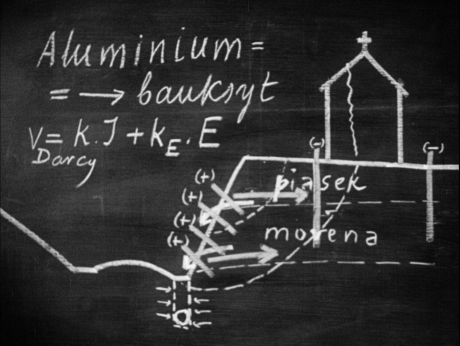 Aluminium =
= → bauksyt
v = k.J + kE.E
Darcy
(-)
(-)
(+)
piasek
(+)
(+)
morena
(+)